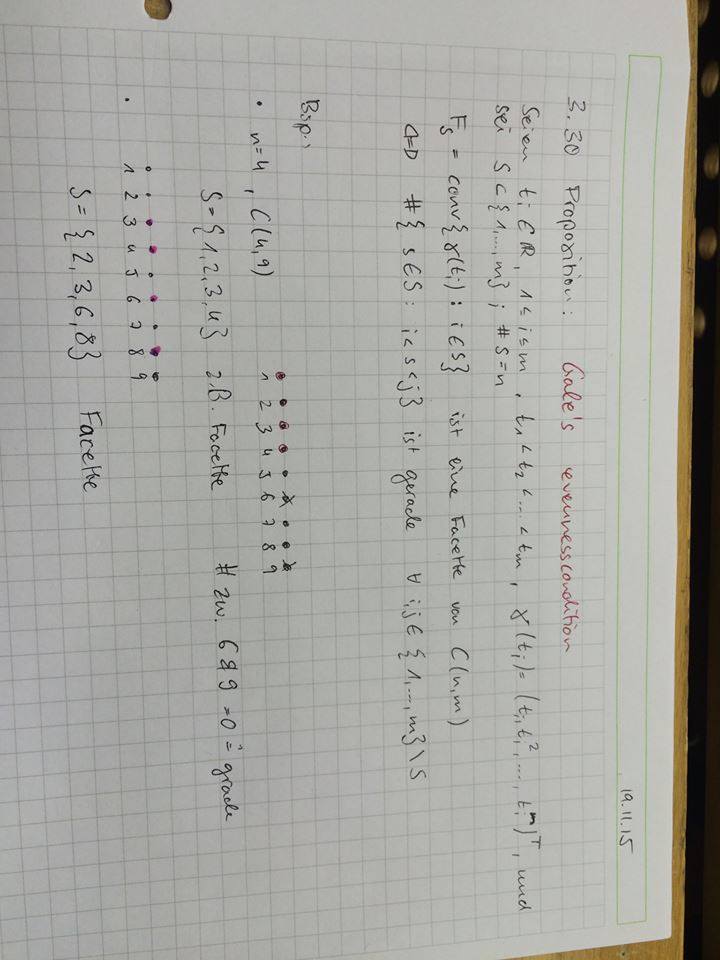 19.11.15
3.30 Proposition: Gale's evennesscondition
Seien tᵢ ∈ ℝ, 1 ≤ i ≤ m, t₁ < t₂ < ... < tₘ, γ(tᵢ) = (tᵢ, tᵢ², ..., tᵢⁿ)ᵀ, und
sei S ⊂ {1,...,m}; #S=n
F_S = conv{γ(tᵢ) : i ∈ S} ist eine Facette von C(n,m)
⇔ #{s ∈ S : i < s < j} ist gerade ∀ i,j ∈ {1,...,m}\S
Bsp.:
1 2 3 4 5 6 7 8 9
• n=4, C(4,9)
S = {1,2,3,4} z.B. Facette # zw. 6 & 9 = 0 = grade
• 1 2 3 4 5 6 7 8 9
S = {2,3,6,8} Facette